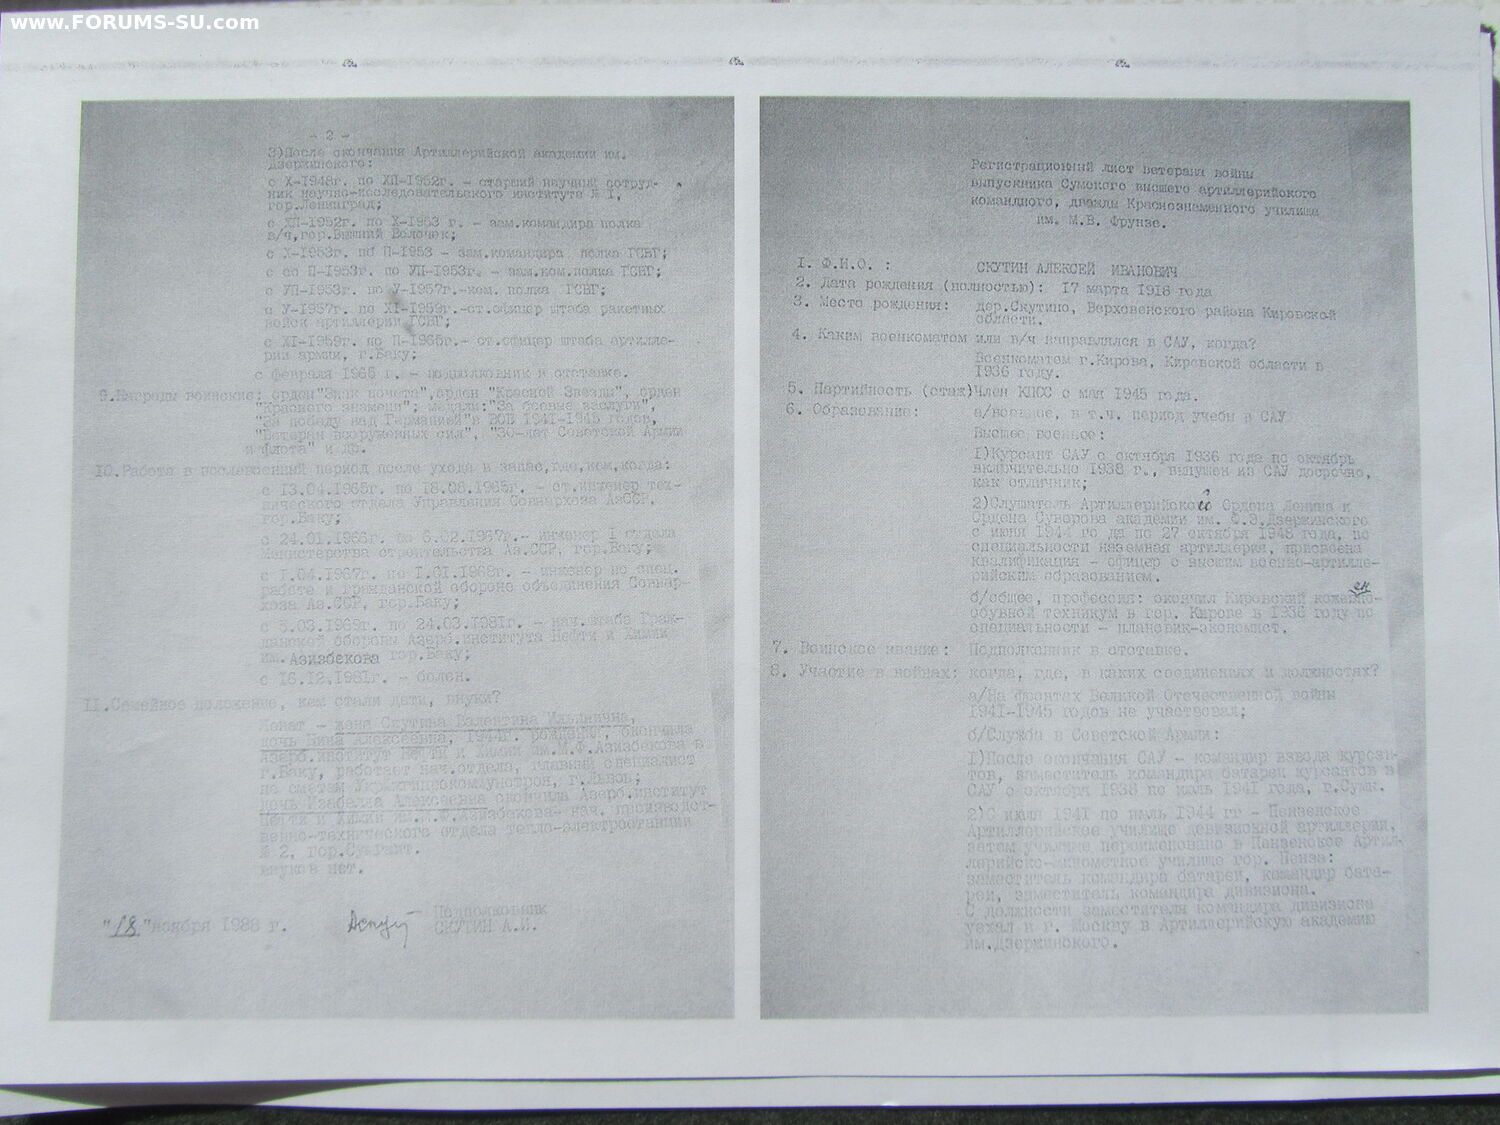 www.FORUMS-SU.com
- 2 -
3)После окончания Артиллерийской академии им.
Дзержинского:
с X-1948г. по XП-1952г. - старший научный сотруд-
ник научно-исследовательского института № I,
гор.Ленинград;
с XП-1952г. по X-1953 г. - зам.командира полка
в/ч,гор.Вышний Волочек;
с X-1953г. по П-1953 - зам.командира полка ГСВГ;
с со П-1953г. по УП-1953г. - зам.ком.полка ГСВГ;
с УП-1953г. по У-1957г.-ком. полка ГСВГ;
с У-1957г. по XI-1959г.-ст.офицер штаба ракетных
войск артиллерии ГСВГ;
с XI-1959г. по П-1965г.- ст.офицер штаба артилле-
рии армии, г.Баку;
с февраля 1965 г. - подполковник в отставке.
9.Награды воинские: орден"Знак почета",орден "Красной Звезды", орден
"Красного знамени"; медали:"За боевые заслуги",
"За победу над Германией"в ВОВ 1941-1945 годов,
"Ветеран вооруженных сил", "30-лет Советской Армии
и флота" и др.
10.Работа в послевоенный период после ухода в запас,где,кем,когда:
с 13.04.1965г. по 18.08.1965г. - ст.инженер тех-
нического отдела Управления Совнархоза АзССР,
гор.Баку;
с 24.01.1966г. по 6.02.1967г.- инженер I отдела
Министерства строительства Аз.ССР, гор.Баку;
с 1.04.1967г. по 1.01.1969г. - инженер по спец.
работе и гражданской обороне объединения Совнар-
хоза Аз.ССР, гор.Баку;
с 3.03.1969г. по 24.03.1981г. - нач.штаба Граж-
данской обороны Азерб.института Нефти и Химии
им.Азизбекова гор.Баку;
с 16.12.1981г. - болен.
II.Семейное положение, кем стали дети, внуки?
Женат - жена Скутина Валентина Ильинична,
дочь Нина Алексеевна, 1944г. рождения, окончила
Азерб.институт Нефти и Химии им.М.Ф.Азизбекова в
г.Баку, работает нач.отдела, главный специалист
по сметам г.Львов;
дочь Изабелла Алексеевна окончила Азерб.институт
Нефти и Химии им.М.Ф.Азизбекова- нач. производст-
венно-технического отдела тепло-электростанции
№ 2, гор.Сумгаит.
внуков нет.
"18"ноября 1988 г.
Подполковник
СКУТИН А.И.
Регистрационный лист ветерана войны
выпускника Сумского высшего артиллерийского
командного, дважды Краснознаменного училища
им. М.В. Фрунзе.
1. Ф.И.О. : СКУТИН АЛЕКСЕЙ ИВАНОВИЧ
2. Дата рождения (полностью): 17 марта 1918 года
3. Место рождения: дер.Скутино, Верховенского района Кировской
области.
4. Каким военкоматом или в/ч направлялся в САУ, когда?
Военкоматом г.Кирова, Кировской области в
1936 году.
5. Партийность (стаж)Член КПСС с мая 1945 года.
6. Образование: а/военное, в т.ч. период учебы в САУ
Высшее военное:
1)Курсант САУ с октября 1936 года по октябрь
включительно 1938 г., выпущен из САУ досрочно,
как отличник;
2)Слушатель Артиллерийской Ордена Ленина и
Ордена Суворова академии им. Ф.Э.Дзержинского
с июня 1944 го да по 27 октября 1948 года, по
специальности наземная артиллерия, присвоена
квалификация - офицер с высшим военно-артилле-
рийским образованием.
б/общее, профессия: окончил Кировский кожевно-
обувной техникум в гор. Кирове в 1936 году по
специальности - плановик-экономист.
7. Воинское звание: Подполковник в отставке.
8. Участие в войнах: когда, где, в каких соединениях и должностях?
а/На фронтах Великой Отечественной войны
1941-1945 годов не участвовал;
б/Служба в Советской Армии:
1)После окончания САУ - командир взвода курсан-
тов, заместитель командира батареи курсантов в
САУ с октября 1938 по июль 1941 года, г.Сумы.
2)С июля 1941 по июль 1944 гг - Пензенское
Артиллерийское училище дивизионной артиллерии,
затем училище переименовано в Пензенское Артил-
лерийско-минометное училище гор. Пенза:
заместитель командира батареи, командир бата-
реи, заместитель командира дивизиона.
С должности заместителя командира дивизиона
уехал в г. Москву в Артиллерийскую академию
им.Дзержинского.